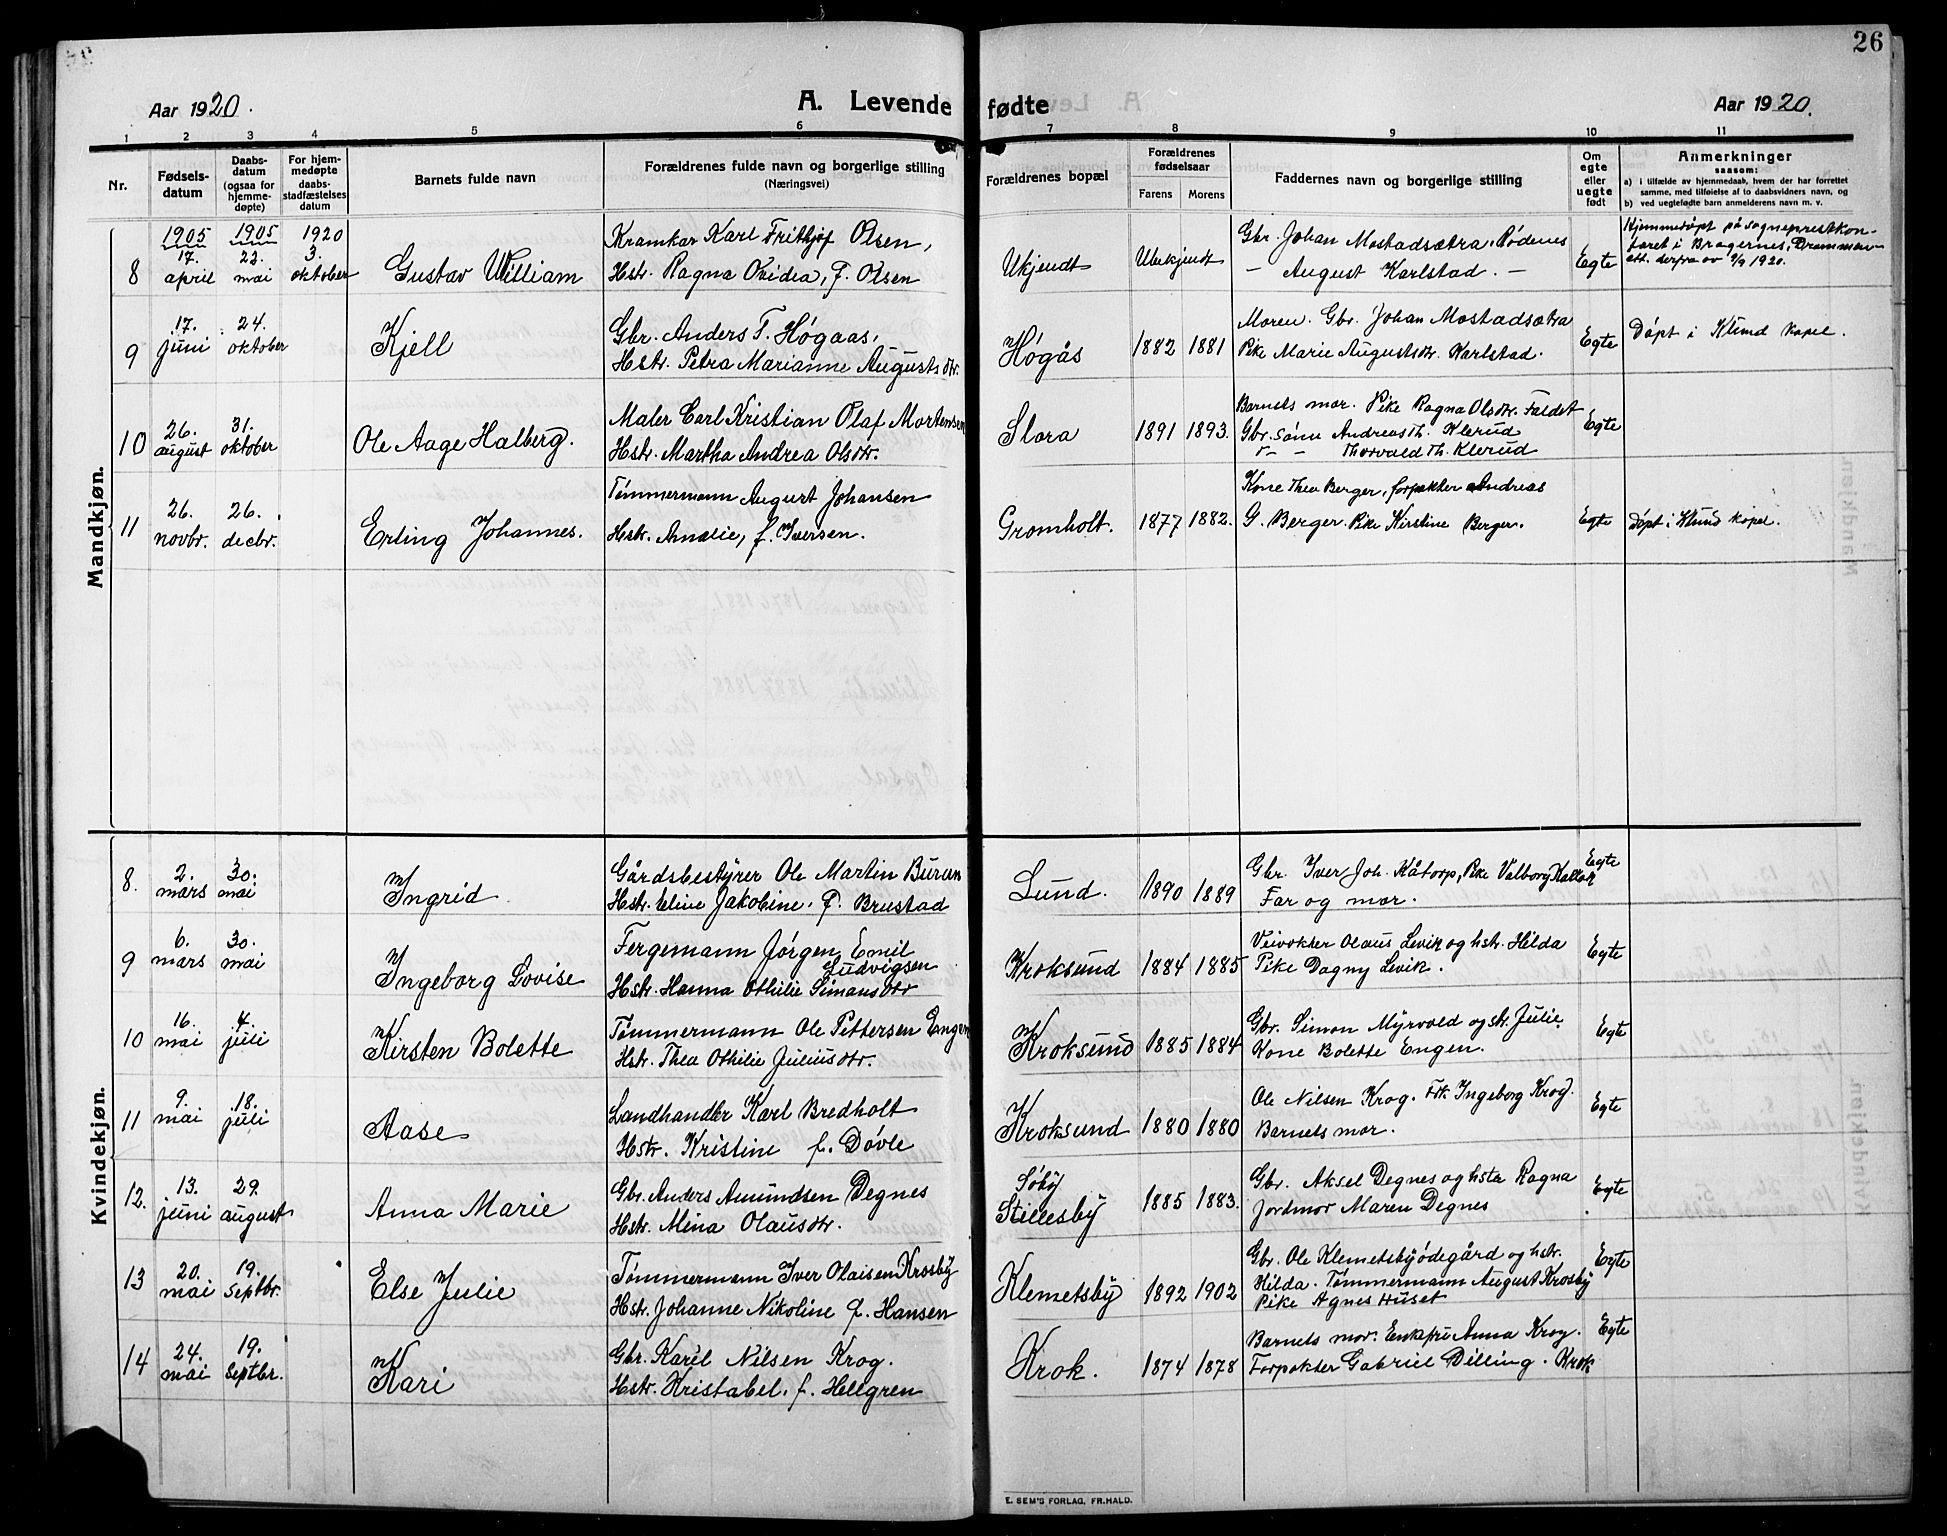 26
Aar 1920.
A. Levende fødte
Aar 1920.
1 2 3 4 5 6 7 8 9 10 11
Nr.
Fødsels-
datum
Daabs-
datum
(ogsaa for
hjemme-
døpte)
For hjem-
medøpte
daabs-
stadfæstelses
datum
Barnets fulde navn
Forældrenes fulde navn og borgerlige stilling
(Næringsvei)
Forældrenes bopæl
Forældrenes
fødselsaar
Farens Morens
Faddernes navn og borgerlige stilling
Om
egte
eller
uegte
født
Anmerkninger
saasom:
a) i tilfælde av hjemmedaab, hvem der har forrettet
samme, med tilføielse af to daabsvidners navn, og
b) ved uegtefødte barn anmelderens navn m. v.
Mandkjøn.
8
1905
17.
april
1905
22.
mai
1920
3.
oktober
Gustav William
Kramkar Karl Frithjof Olsen,
Hstr. Ragna Ovidea, f. Olsen
Ukjendt
Ubekjendt
Gbr. Johan Mostadsætra, Rødenes
— August Karlstad. —
Egte
Hjemmedøpt på sogneprestkon-
toret i Bragernes, Drammen
att. derfra av 7/9 1920.
9
17.
juni
24.
oktober
Kjell
Gbr. Anders T. Høgaas,
Hstr. Petra Marianne Augustsdtr.
Høgås
1882 1881
Moren. Gbr. Johan Mostadsætra
Pike Marie Augustsdtr. Karlstad.
Egte
Døpt i Klund kapel.
10
26.
august
31.
oktober
Ole Aage Halberg.
Maler Carl Kristian Olaf Mortensen
Hstr. Martha Andrea Olsdtr.
Slora
1891 1893.
Barnets mor. Pike Ragna Olsdtr. Faldet
Gbr. sønn Andreas Th. Klerud
— — Thorvald Th. Klerud
Egte
11
26.
novbr.
26.
decbr.
Erling Johannes.
Tømmermann August Johansen
Hstr. Amalie, f. Iversen.
Gromholt.
1877 1882.
Kone Thea Berger, forpakter Andreas
G. Berger. Pike Kirstine Berger.
Egte
døpt i Klund kapel.
Kvindekjøn.
8.
2.
mars
30.
mai
Ingrid
Gårdsbestyrer Ole Martin Buran
Hstr. Eline Jakobine. f. Brustad
Lund.
1890 1889
Gbr. Iver Joh. Kåtorp, Pike Valborg Kallak
Far og mor.
Egte
9
6.
mars
30.
mai
Ingeborg Lovise
Fergemann Jørgen Emil
Ludvigsen
Hstr. Hanna Othilie Simensdtr
Kroksund
1884 1885
Veivokter Olaus Levik og hstr. Hilda
Pike Dagny Levik.
Egte
10
16.
mai
4.
juli
Kirsten Bolette
Tømmermann Ole Pettersen Engen
Hstr. Thea Othilie Juliusdtr.
Kroksund
1885 1884
Gbr. Simon Myrvold og str. Julie.
Kone Bolette Engen.
Egte
11
9.
mai
18.
juli
Aase
Landhandler Karl Bredholt
Hstr. Kristine f. Døvle
Kroksund
1880 1880
Ole Nilsen Krog. Frk Ingeborg Krog.
Barnets mor.
Egte
12.
13.
juni
29.
august
Anna Marie
Gbr. Anders Amundsen Degnes
Hstr. Mina Olausdtr.
Søby
Stillesby
1885 1883.
Gbr. Aksel Degnes og hstr Ragna
Jordmor Maren Degnes
Egte
13
20.
mai
19.
septbr.
Else Julie
Tømmermann Iver Olaisen Krosby
Hstr. Johanne Nikoline f. Hansen
Klemetsby
1892 1902
Gbr. Ole Klemetsbyødegård og hstr.
Hilda. Tømmermann August Krosby
Pike Agnes Huset
Egte
14
24.
mai
19.
septbr.
Kari
Gbr. Karel Nilsen Krog.
Hstr. Kristabel. f. Hellgren
Krok.
1874 1878
Barnets mor. Enkfru Anna Krog.
Forpakter Gabriel Dilling. Krok
Egte
E. SEM'S FORLAG, FR.HALD.